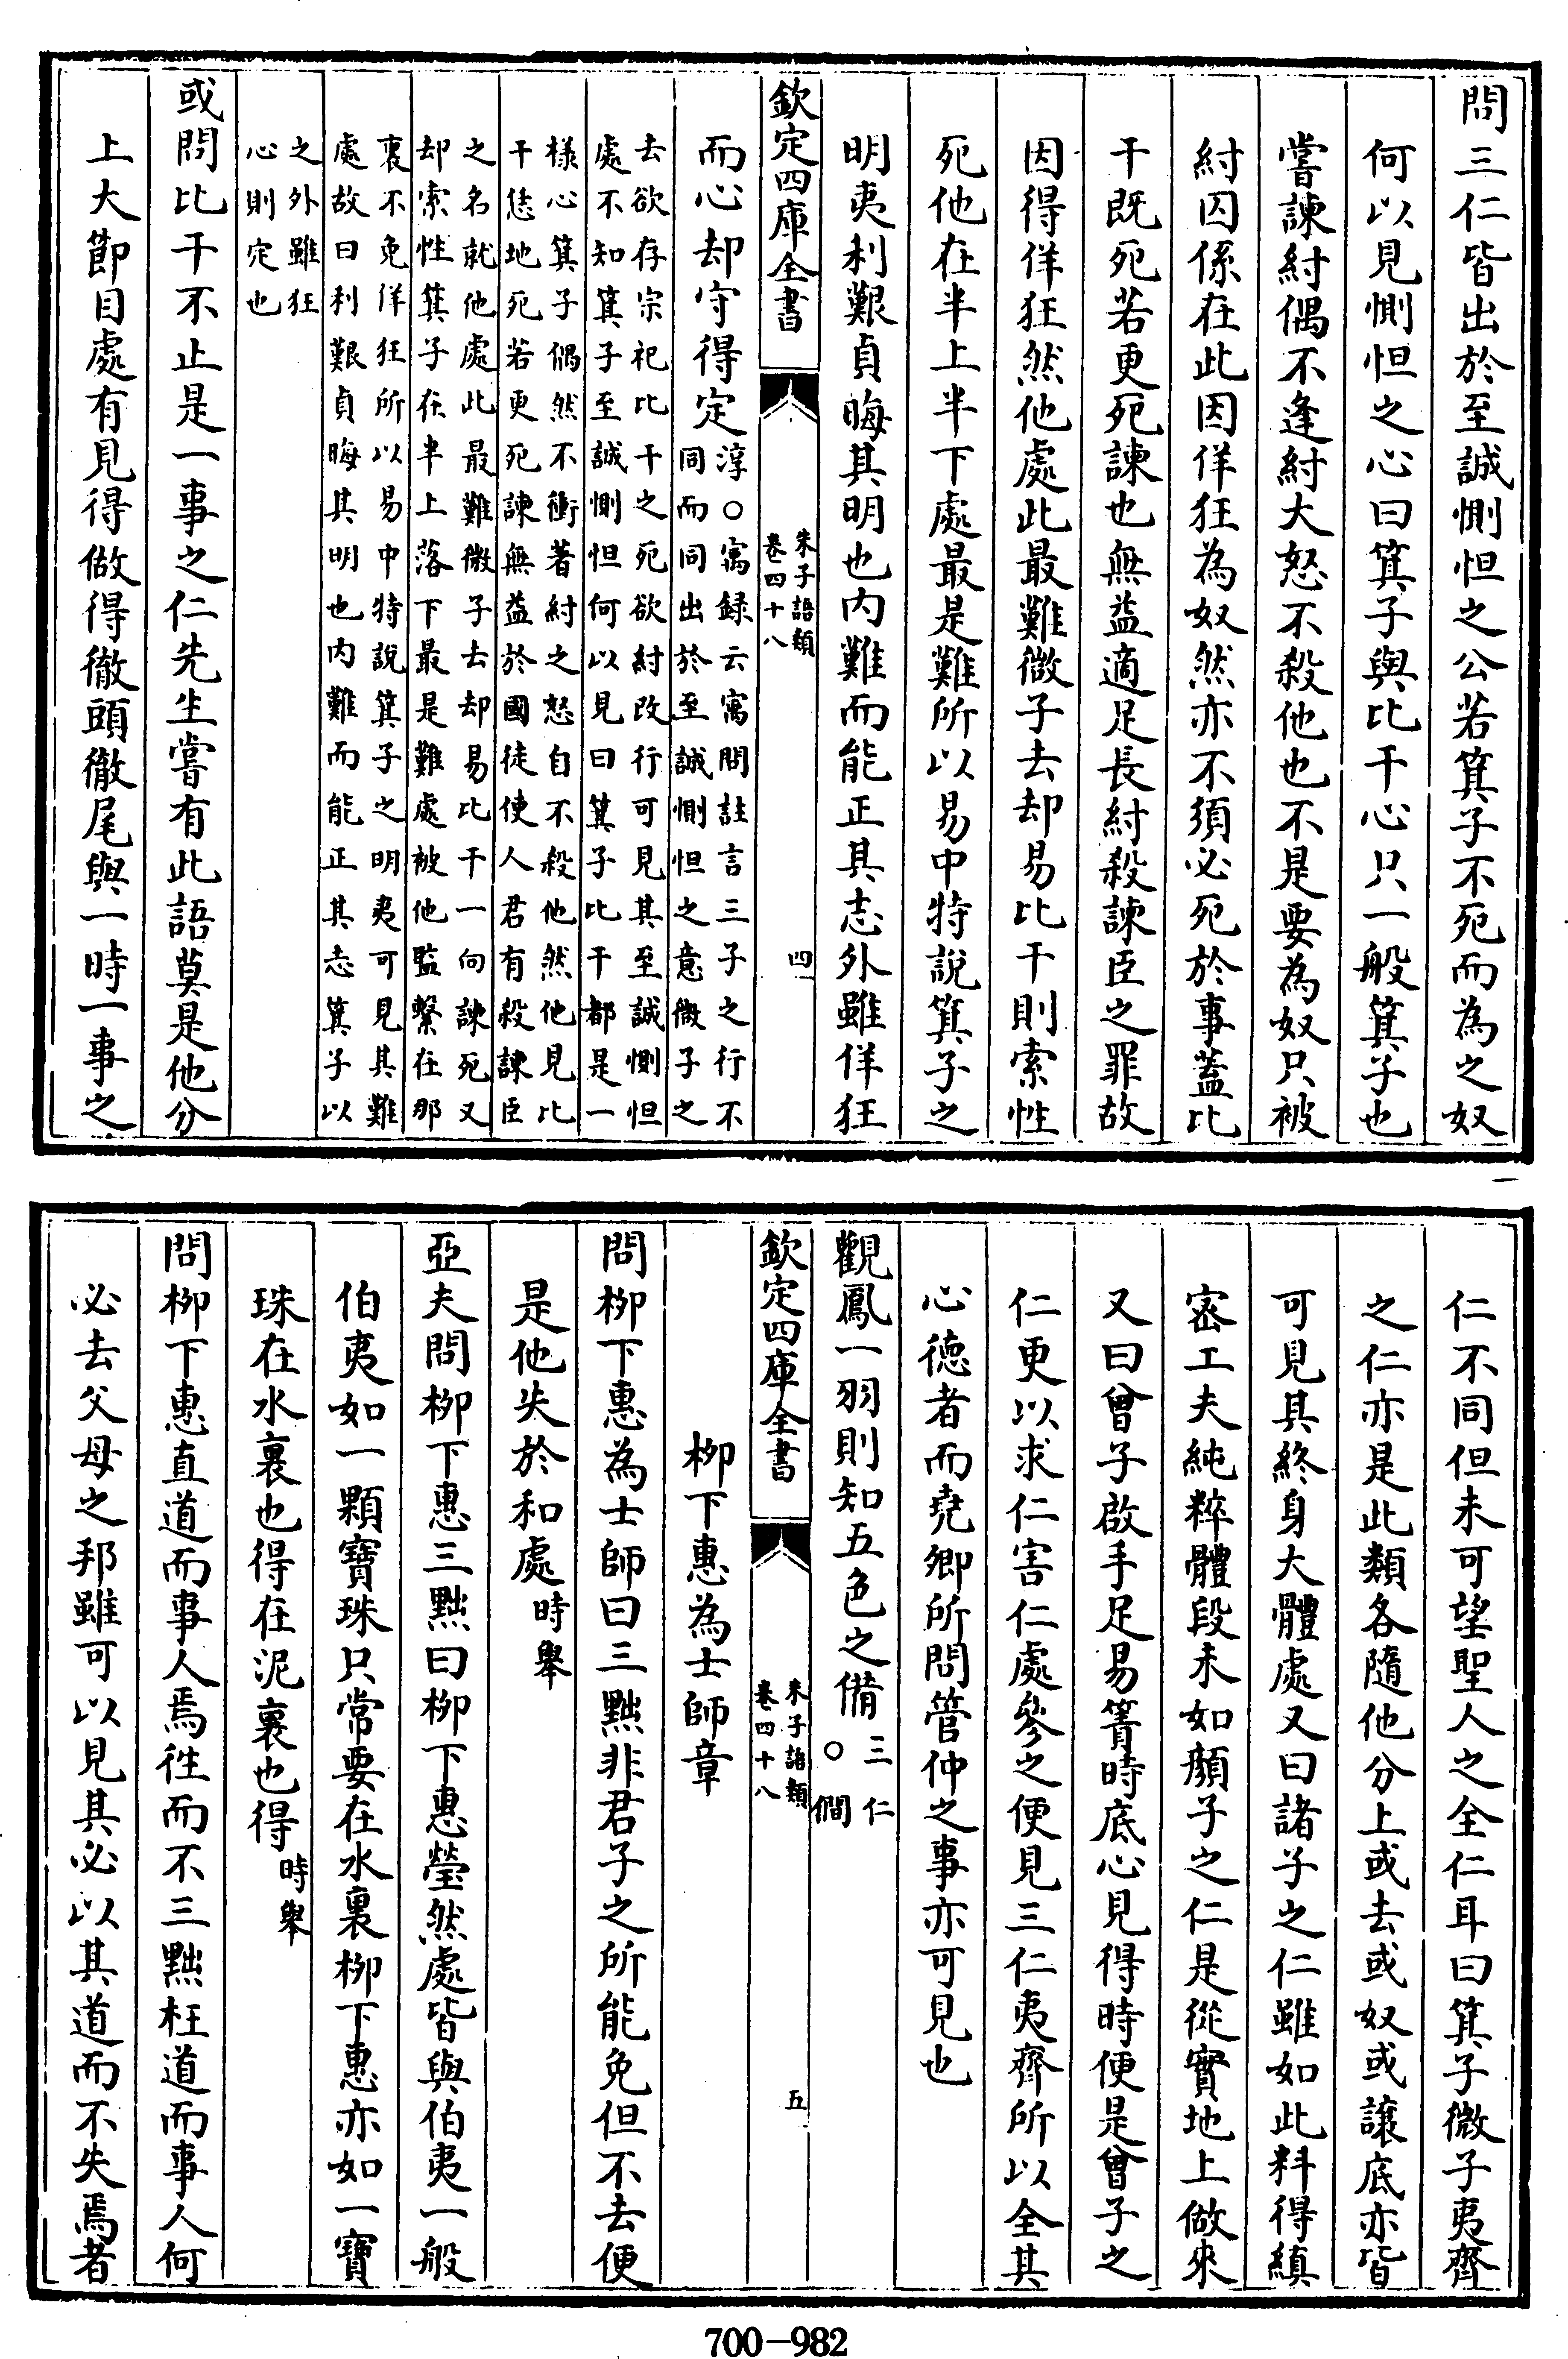 問三仁皆出於至誠惻怛之公若箕子不死而為之奴
何以見惻怛之心曰箕子與比干心只一般箕子也
嘗諫紂偶不逢紂大怒不殺他也不是要為奴只被
紂囚係在此因佯狂為奴然亦不須必死於事蓋比
干既死若更死諫也無益適足長紂殺諫臣之罪故
因得佯狂然他處此最難微子去却易比干則索性
死他在半上半下處最是難所以易中特說箕子之
明夷利艱貞晦其明也内難而能正其志外雖佯狂
欽定四庫全書
朱子語類
卷四十八
四
而心却守得定淳○寓録云寓問註言三子之行不
同而同出於至誠惻怛之意微子之
去欲存宗祀比干之死欲紂改行可見其至誠惻怛
處不知箕子至誠惻怛何以見曰箕子比干都是一
様心箕子偶然不衝著紂之怒自不殺他然他見比
干恁地死若更死諫無益於國徒使人君有殺諫臣
之名就他處此最難微子去却易比干一向諫死又
却索性箕子在半上落下最是難處被他監繋在那
裏不免佯狂所以易中特說箕子之明夷可見其難
處故曰利艱貞晦其明也内難而能正其志箕子以
之外雖狂
心則定也
或問比干不止是一事之仁先生嘗有此語莫是他分
上大節目處有見得做得徹頭徹尾與一時一事之
仁不同但未可望聖人之全仁耳曰箕子微子夷齊
之仁亦是此類各隨他分上或去或奴或讓底亦皆
可見其終身大體處又曰諸子之仁雖如此料得縝
密工夫純粹體段未如顔子之仁是從實地上做來
又曰曾子啟手足易簀時底心見得時便是曾子之
仁更以求仁害仁處參之便見三仁夷齊所以全其
心徳者而堯卿所問管仲之事亦可見也
觀鳳一羽則知五色之備三仁
○僩
欽定四庫全書
朱子語類
卷四十八
五
柳下惠為士師章
問柳下惠為士師曰三黜非君子之所能免但不去便
是他失於和處時舉
亞夫問柳下惠三黜曰柳下惠瑩然處皆與伯夷一般
伯夷如一顆寳珠只常要在水裏柳下惠亦如一寳
珠在水裏也得在泥裏也得時舉
問柳下惠直道而事人焉徃而不三黜枉道而事人何
必去父母之邦雖可以見其必以其道而不失焉者
700-982